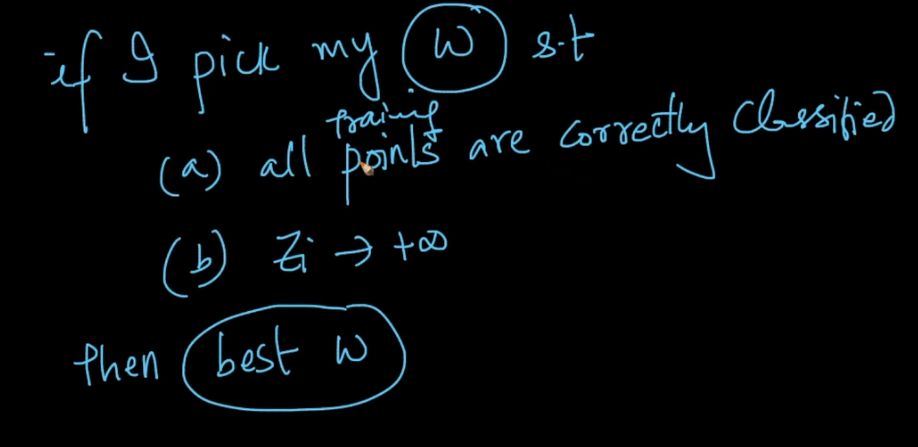 if I pick my w s.t
training
(a) all points are correctly classified
(b) Zi → +∞
then best w